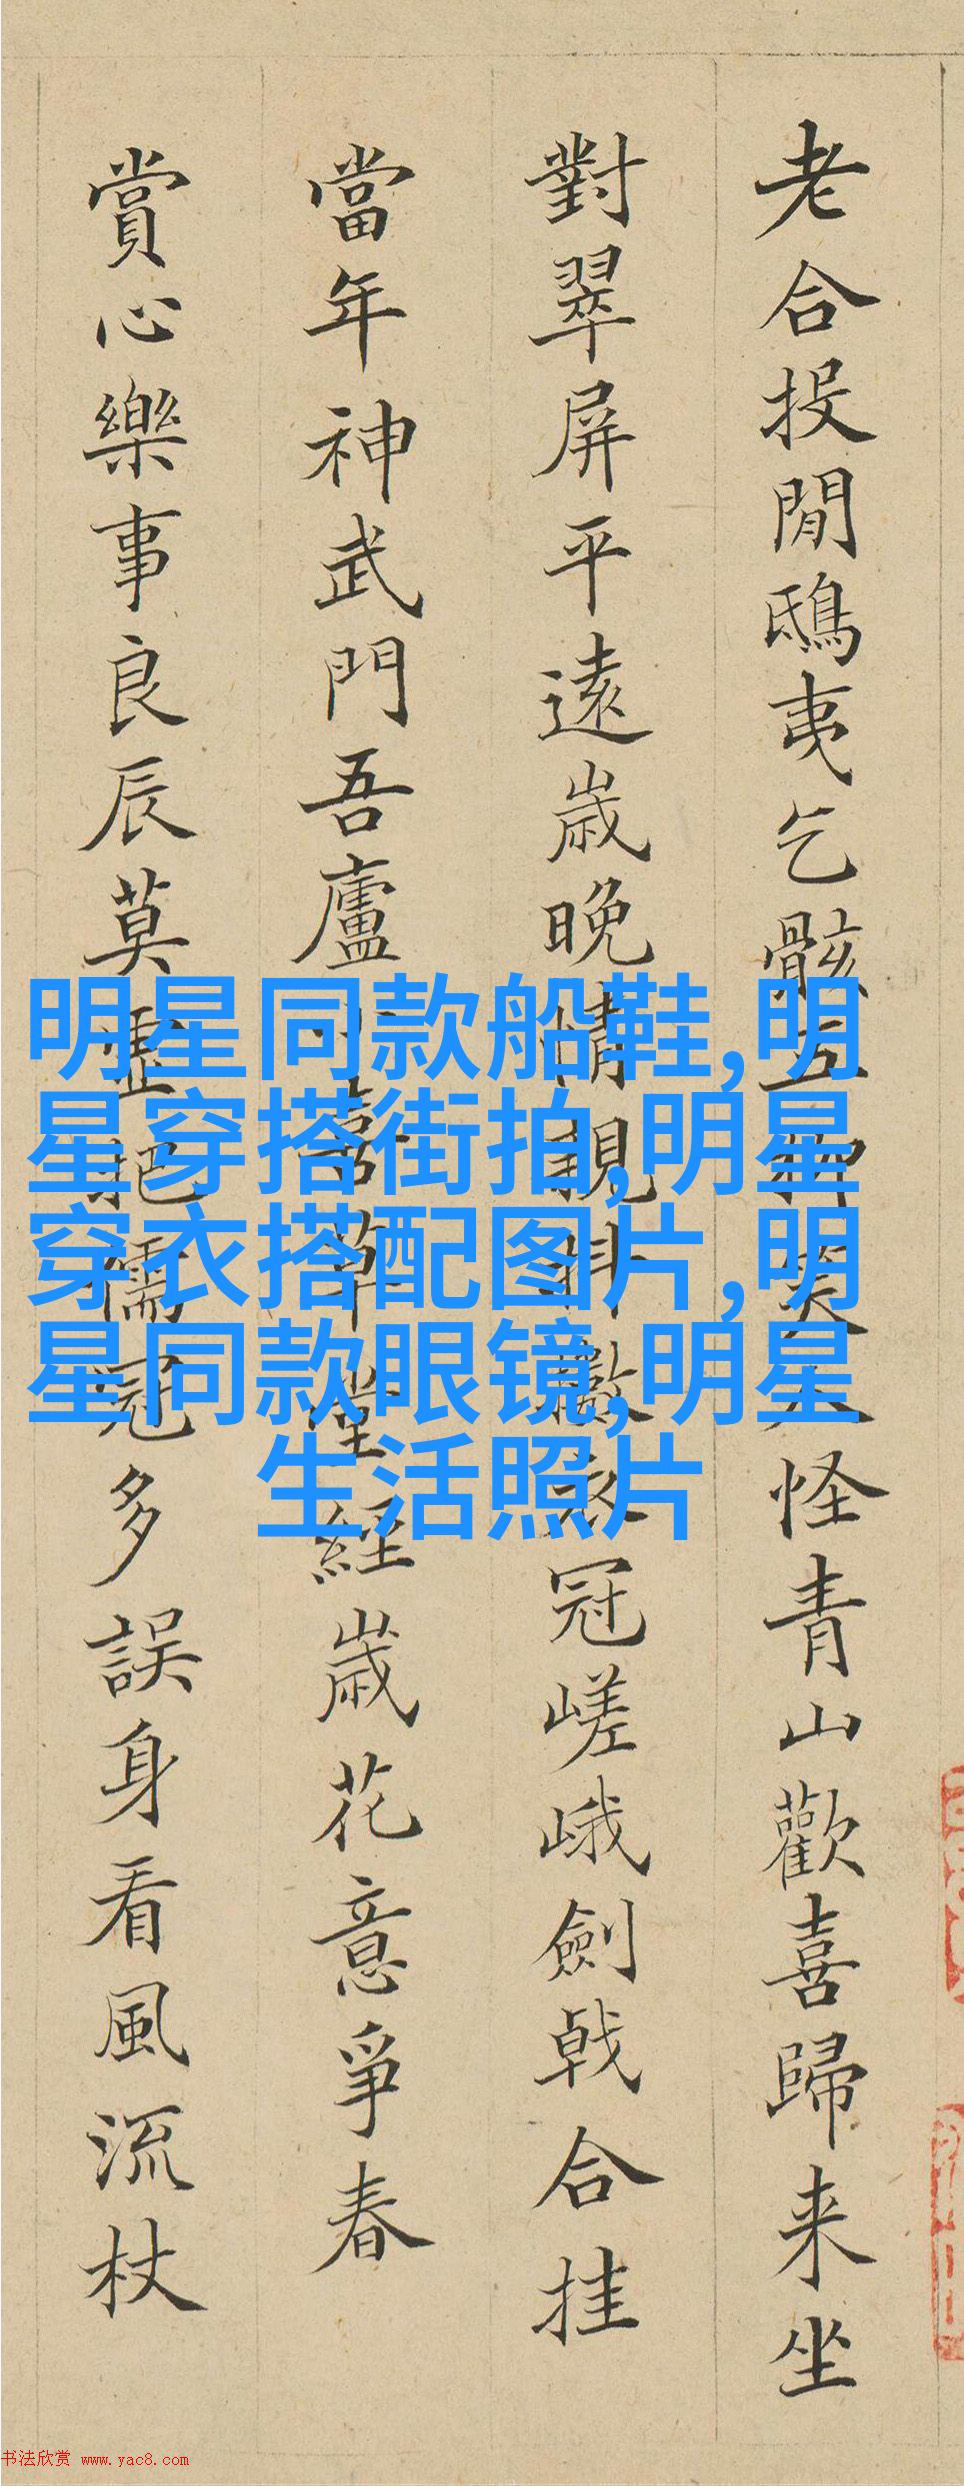 老合投閒鴟夷乞骸五笑人怪青山歡喜歸来坐
對翠屏平遠歳晚情親抖擻衣冠嵯峨劍戟合挂
當年神武門吾廬喜草堂經歳花意爭春
賞心樂事良辰莫虛把儒冠多誤身看風流杖
明星同款船鞋,明
星穿搭街拍,明星
穿衣搭配图片,明
星同款眼镜,明星
生活照片
书法欣赏 www.yac8.com